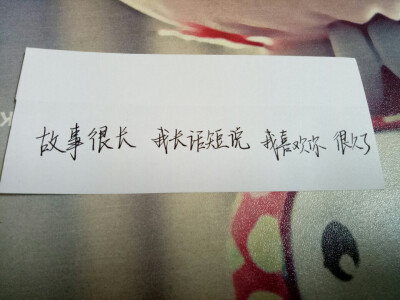 故事很长 我长话短说 我喜欢你 很久了